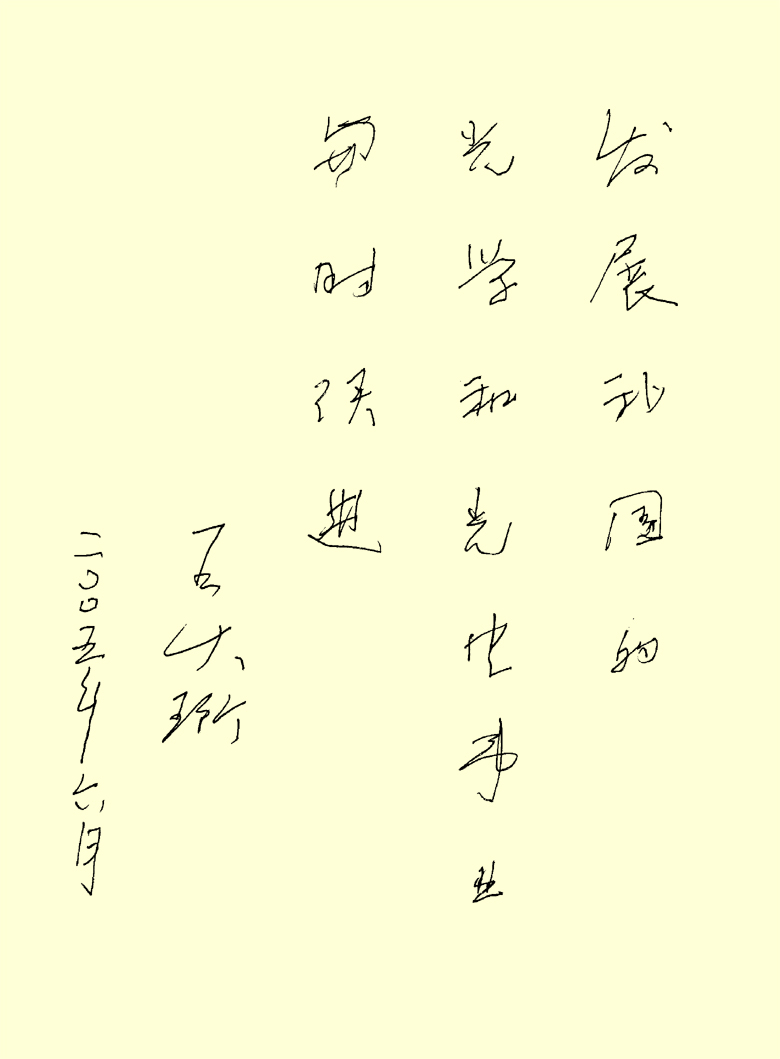 发展我国的
光学和光电事业
与时俱进
王大珩
二〇〇五年六月